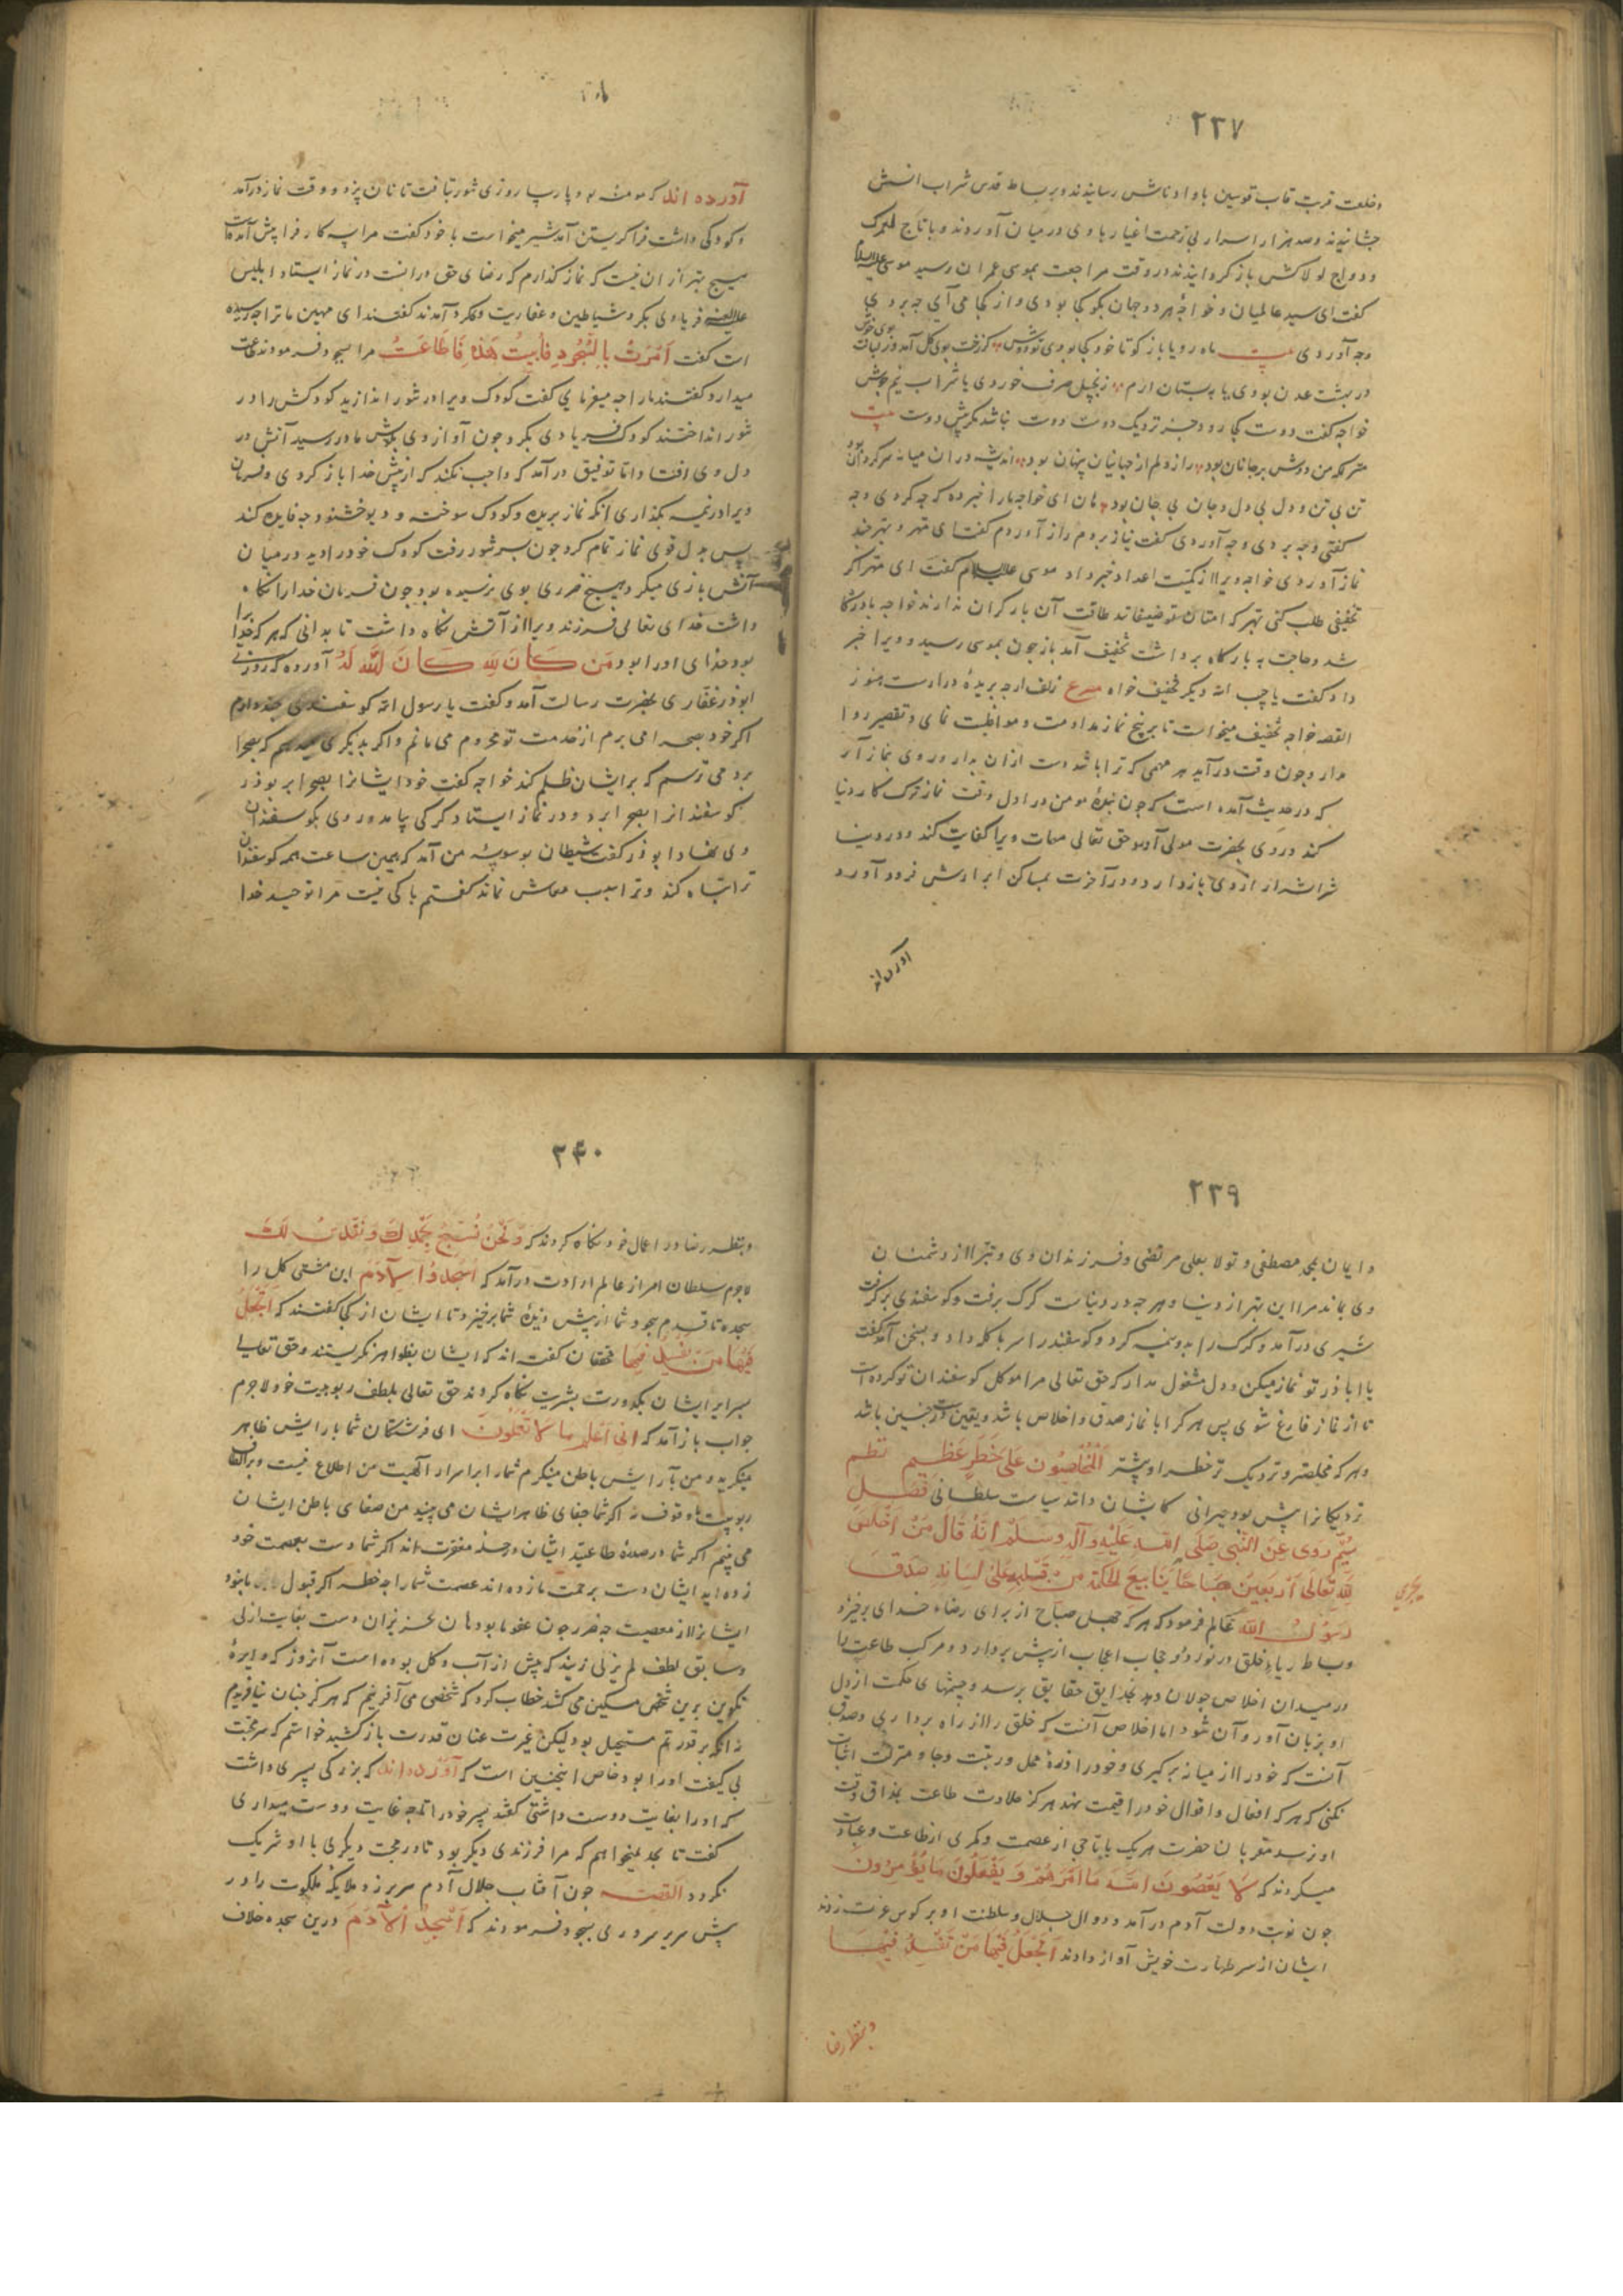 ۲۳۷
و خلعت قربت قاب قوسین با و ادناش رسانیدند و بر بساط قدس شراب انسش
چشانیدند و صد هزار اسرار بی زحمت اغیار با وی در میان آوردند و با تاج لعمرک
و دواج لولاکش باز گردانیدند در وقت مراجعت بموسی عمران رسید موسی علیه السلام
گفت ای سید عالمیان و خواجهٔ هر دو جهان بگو کجا بودی و از کجا می آیی چه بردی
و چه آوردی بیت ماه رویا باز گو تا خود کجا بودی تو دوش کز رخت بوی گل آمد وز لبانت بوی نوش
در بهشت عدن بودی یا به بستان ارم زنجبیل صرف خوردی یا شراب نیم جوش
خواجه گفت دوست کجا رود جز نزدیک دوست دوست نباشد مگر پیش دوست بیت
منزلگه من دوش بر جانان بود راز دلم از جهانیان پنهان بود اندیشه در ان میانه سرگردان بود
تن بی تن و دل بی دل و جان بی جان بود هان ای خواجه ما را خبر ده که چه کردی و چه
گفتی و چه بردی و چه آوردی گفت نیاز بردم راز آوردم گفت ای مهتر و بهتر چند
نماز آوردی خواجه ویرا از کمیّت اعداد خبر داد موسی علیه السلام گفت ای مهتر اگر
تخفیفی طلب کنی بهتر که امتان تو ضعیفانند طاقت آن بار گران ندارند خواجه با درگاه
شد و حاجت به بارگاه برداشت تخفیف آمد باز چون بموسی رسید و ویرا خبر
داد گفت یا حبیب الله دیگر تخفیف خواه مصرع زلف ارچه بریدهٔ درازست هنوز
القصه خواجه تخفیف میخواست تا بر پنج نماز مداومت و مواظبت نمای و تقصیر روا
مدار و چون وقت درآید هر مهمی که ترا باشد دست ازان بدار و روی بنماز آر
که در حدیث آمده است که چون بندهٔ مومن در اول وقت نماز ترک کار دنیا
کند و روی بحضرت مولی آورد حق تعالی مهمات ویرا کفایت کند و در دنیا
شر اشرار از وی باز دارد و در آخرت بمساکن ابرارش فرود آورد
آورده اند
آورده اند که مومنهٔ بود پارسا روزی تنور تیافت تا نان پزد و وقت نماز درآمد
و کودکی داشت فرا گریستن آمد شیر میخواست با خود گفت مرا سه کار فرا پیش آمده است
هیچ بهتر از ان نیست که نماز گذارم که رضای حق درانست در نماز ایستاد ابلیس
علیه اللعنه فریادی بکرد شیاطین و عفاریت و گرد آمدند گفتند ای مهین ما ترا چه رسیده
است گفت اُمِرتُ بِالسُّجُودِ فَاَبَیتُ هَذِهِ فَاَطَاعَتْ مرا بسجود فرمودند
میدارد گفتند ما را چه میفرمایی گفت کودک ویرا در تنور اندازید کودکش را در
تنور انداختند کودک فریادی بکرد چون آواز وی بگوش مادر رسید آتش در
دل وی افتاد اما توفیق درآمد که واجب نکند که از پیش خدا باز گردی و فرمان
ویرا در نیمه بگذاری آنگه نماز بریده و کودک سوخته و دیو خشنود چه فایده کند
پس بدل قوی نماز تمام کرد چون بسر تنور رفت کودک خود را دید در میان
آتش بازی میکرد و هیچ ضرری بوی نرسیده بود چون فرمان خدا را نگاه
داشت خدای تعالی فرزند ویرا از آتش نگاه داشت تا بدانی که هر که خدا را
بود خدای او را بود مَن كَانَ لِلّٰهِ كَانَ اللّٰهُ لَهُ آورده که روزی
ابوذر غفاری بحضرت رسالت آمد و گفت یا رسول الله گوسفندی چند دارم
اگر خود بصحرا می برم از خدمت تو محروم می مانم و اگر بدیگری میدهم که بصحرا
برد می ترسم که بر ایشان ظلم کند خواجه گفت خود ایشانرا بصحرا بر بوذر
گوسفندانرا بصحرا برد و در نماز ایستاد گرگی بیامد و روی بگوسفندان
وی نهاد ابوذر گفت شیطان بوسوسهٔ من آمد که همین ساعت همه گوسفندان
ترا تباه کند و ترا سبب معاش نماند گفتم باکی نیست مرا توحید خدا
۲۳۹
و ایمان بمحمد مصطفی و تولا بعلی مرتضی و فرزندان وی و تبرّا از دشمنان
وی بماند مرا این بهتر از دنیا و هر چه در دنیاست گرگ برفت و گوسفندی برگرفت
شیری درآمد و گرگ را بدو نیمه کرد و گوسفند را سر با گله داد و بسخن آمد گفت
یا اباذر تو نماز میکن و دل مشغول مدار که حق تعالی مرا موکل گوسفندان تو کرده است
تا از نماز فارغ شوی پس هر کرا با نماز صدق و اخلاص باشد و یقین درست چنین باشد
و هر که مخلصتر و نزدیک تر خطر او بیشتر اَلْمُخْلِصُونَ عَلَى خَطَرٍ عَظِيمٍ نظم
نزدیکانرا بیش بود حیرانی کایشان دانند سیاست سلطانی فصل
سیُّم رُوِیَ عَنِ النَّبِی صَلَّى اللّٰهُ عَلَيْهِ وَآلِهِ وَسَلَّمْ اَنَّهُ قَالَ مَنْ اَخْلَصَ
لِلّٰهِ تَعَالَى اَرْبَعِينَ صَبَاحًا يَنَابِيعَ الْحِكْمَةِ مِنْ قَلْبِهِ عَلَى لِسَانِهِ صَدَقَ
رَسُولُ الله عالم فرمود که هر که چهل صباح از برای رضاء خدای برخیزد
و بساط ریاء خلق در نوردد و حجاب اعجاب از پیش بردارد و مرکب طاعت را
در میدان اخلاص جولان دهد بحدایق حقایق برسد و چشمهای حکمت از دل
او بزبان آورد و آن شود اما اخلاص آنست که خلق را از راه برداری و صدق
آنست که خود را از میانه برگیری و خود را ذرهٔ محل و رتبت و جاه و منزلت اثبات
نکنی که هر که افعال و اقوال خود را قیمت نهد هرگز حلاوت طاعت بمذاق وقت
او نرسد مقربان حضرت هر یک با تاجی از عصمت و کمری از طاعت و عبادت
میگردند که لَا يَعْصُونَ اللّٰهَ مَا اَمَرَهُمْ وَ يَفْعَلُونَ مَا يُؤْمَرُونَ
چون نوبت دولت آدم درآمد و دوال جلال و سلطنت او بر کوس عزت زدند
ایشان از سر طهارت خویش آواز دادند اَتَجْعَلُ فِيهَا مَنْ يُفْسِدُ فِيهَا
و بنظر رضا
۲۴۰
و بنظر رضا در اعمال خود نگاه کردند که وَ نَحْنُ نُسَبِّحُ بِحَمْدِكَ وَ نُقَدِّسُ لَكَ
لاجرم سلطان امر از عالم ارادت درآمد که اُسْجُدُوا لِآدَمَ این مشتی گل را
سجده تا قدم سجود شما از پیش دیدهٔ شما برخیزد تا ایشان از کجا گفتند که اَتَجْعَلُ
فِيهَا مَنْ يُفْسِدُ فِيهَا محققان گفته اند که ایشان بظواهر نگریستند و حق تعالی
بسرایر ایشان بکدورت بشریت نگاه کردند حق تعالی بلطف ربوبیت خود لاجرم
جواب باز آمد که اِنِّی اَعْلَمُ مَا لَا تَعْلَمُونَ ای فرشتگان شما بآرایش ظاهر
مینگرید و من بآرایش باطن مینگرم شما را بر اسرار الٰهیت من اطلاع نیست و بر الطاف
ربوبیت وقوف نه اگر شما جفای ظاهر ایشان می بینید من صفای باطن ایشان
می بینم اگر شما در صدد طاعتید ایشان در صدد مغفرت اند اگر شما دست بعصمت خود
زده اید ایشان دست برحمت ما زده اند عصمت شما را چه خطر اگر قبول ما نبود
ایشانرا از معصیت چه ضرر چون عفو ما بود هان عزیزان دست بغایت ازلی
و سابق لطف لم یزلی زنید که پیش از آب و گل بوده است آنروز که دایرهٔ
تکوین برین شخص مسکین می کشد خطاب کرد که شخصی می آفرینم که هرگز چنان نیافریدم
نه آنکه بر قدرتم مستحیل بود لیکن غیرت عنان قدرت باز کشید خواستم که سر محبت
بی کیفیت او را بود خاص اینچنین است که آورده اند که بزرگی پسری داشت
که او را بغایت دوست داشتی گفتند پسر خود را تا چه غایت دوست میداری
گفت تا بحدیکه نمیخواهم که مرا فرزندی دیگر بود تا در محبت دیگری با او شریک
نگردد القصه چون آفتاب جلال آدم سر برزد ملایکهٔ ملکوت را در
پیش سریر سروری بسجود فرمودند که اُسْجُدُوا لِآدَمَ درین سجده خلاف